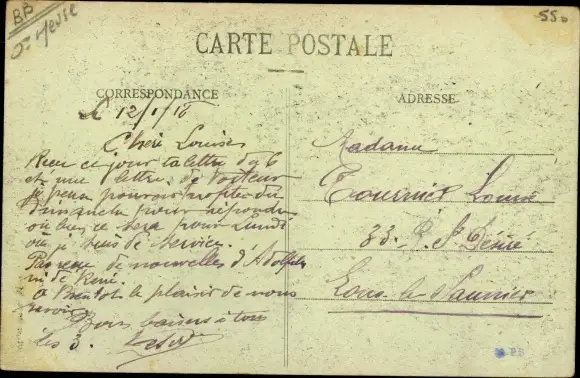 BB
55
CARTE POSTALE
CORRESPONDANCE
ADRESSE
Le 12/1/16
Chère Louise
Reçu ce jour ta lettre du 6
et une lettre de
je pense pouvoir profiter du
Dimanche pour répondre
ou bien ce sera pour Lundi
où je suis de service.
Pas reçu de nouvelles d'Adolphe
ni de René.
A Bientôt le plaisir de nous
revoir
Bons baisers à tous
les 3.
Madame
Tournier Louise
33. R. St Désiré
Lons-le-Saunier